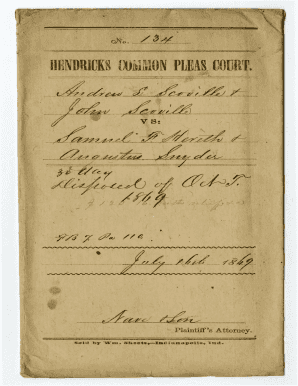 No. 134
HENDRICKS COMMON PLEAS COURT.
Andrew E Scoville &
John Scoville
VS:
Samuel F. &
Augustus Snyder
3d Day
Disposed of O. T.
1869
July 16th 1869
Nave & Son
Plaintiff's Attorney.
Sold by Wm. Sheets,—Indianapolis, Ind.